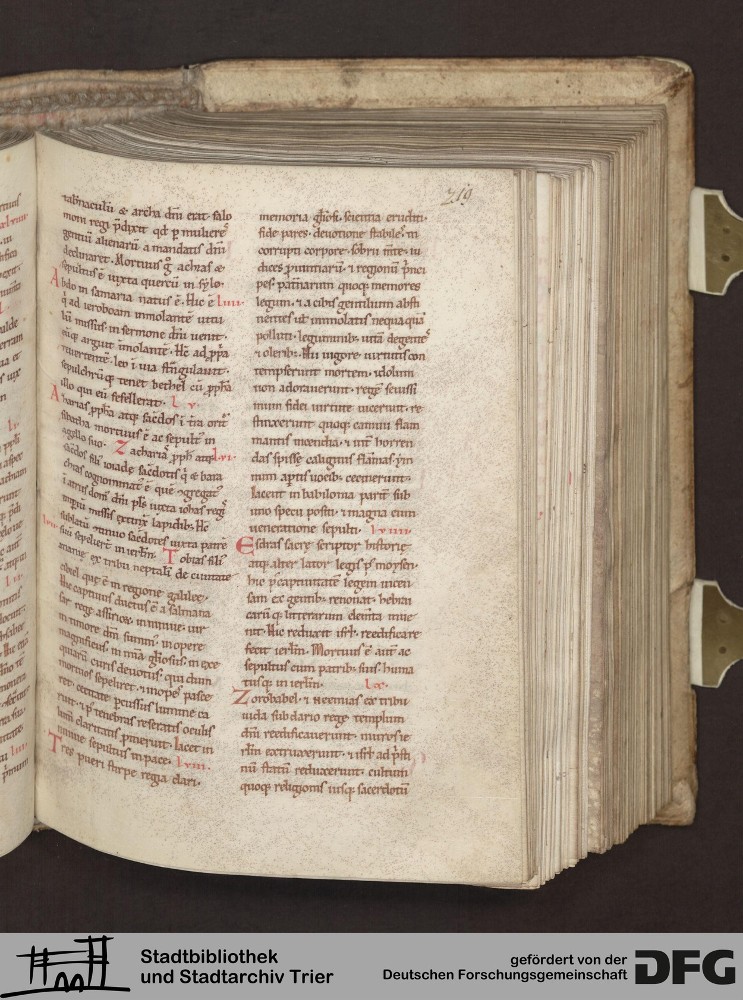 219
tabnaculū & archa dnī erat. Salo
moni regi p̄dixit qd ꝑ mulieres
gentiū alienarū a mandatis dnī
declinaret. Mortuus g̊ achias &
sepultus ē iuxta quercū in sylo.
Abdo in samaria natus ē. Hic ē liiii.
q̇ ad ieroboam immolantē uitu
lū missus in sermone dnī uenit.
eūq; arguit imolantē. Hc̄ ad ꝓp̄a
reuertentē. leo ī uia st̄ngulauit.
sepulchrūq; tenet bethel cū ꝓph̄a
illo qui eū fefellerat. l v.
Azarias ꝓph̄a atq; sac̄dos ī
sibatha mortuus ē ac sepult in
agello suo. Zacharia ꝓph̄ atq; lvi.
sac̄dos filī ioiadę sac̄dotis q̇ & bara
chias cognominat̄ ē quē ɔgregat
ī atriis dom̄ dnī pl̄s iuxta iohas regē
impiū missis extinx̄ lapidib;. Hc̄
sublatū ɔtinuo sac̄dotes iuxta patrē
suū sepelierē in ierłm. Tobias filī
ananie ex tribu neptali de ciuitate
iebel quę ē in regione galileę.
hic captiuus ductus ē a salmana
sar rege assirioꝝ. in niniue uir
in timore dnī summ. in opere
magnificus. in mīa gl̄iosus. in exe
quiarū curis deuotus. qui dum
mortuos sepeliret. & inopes pasce
ret. cecitate ꝑcussus lumine ca
ruit. & ꝑ tenebras reseratis oculis
lum̄ claritatis ꝓmeruit. Iacet in
niniue sepultus in pace. lviii.
Tres pueri stirpe regia clari.
memoria gl̄iosi. scientia eruditi.
fide pares. deuotione stabiles. in
corrupti corpore. sobrii m̄te. iu
dices ꝓuintiarū. & regionū p̄nci
pes. patriarum quoq; memores
legum. & a cibis gentilium absti
nentes ut immolatis nequaquā
polluti. leguminib; uitā degentes
& olerib;. Hii uigore uirtutis con
tempserunt mortem. idolum
non adorauerunt. regē seuissi
mum fidei uirtute uicerunt. re
stinxerunt quoq; camini flam
mantis incendia. & int̄ horren
das spisse caliginis flāmas. ym
num aptis uocib; cecinerunt.
Iacent in babilonia parit̄ sub
uno specu positi. & magna cum
ueneratione sepulti. lviiii.
Esdras sacrę scriptor historię
atq; alter lator legis ꝑ moysen.
hic p̄ captiuitatē legem incen
sam ex gentib; renouat. hebrai
carū q; litterarum elem̄ta inue
nit. Hic reduxit isrł. reedificare
fecit ierłm. Mortuus ē aut̄ ac
sepultus cum patrib; suis. huma
tusq; in ierłm. lx.
Zorobabel. & neemias ex tribu
iuda sub dario rege templum
dnī reedificauerunt. muros ie
rłm extruxerunt. & isrł ad p̄sti
nū statū reduxerunt. cultum
quoq; religionis iusq; sacerdotū
Stadtbibliothek
und Stadtarchiv Trier
gefördert von der
Deutschen Forschungsgemeinschaft
DFG